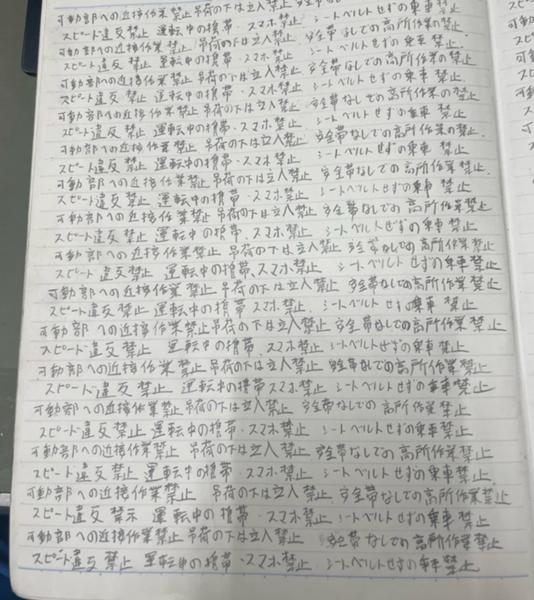 可動部への近接作業禁止 吊荷の下は立入禁止 安全帯なしでの高所作業禁止
スピード違反禁止 運転中の携帯・スマホ禁止 シートベルトせずの乗車禁止
可動部への近接作業禁止 吊荷の下は立入禁止 安全帯なしでの高所作業禁止.
スピード違反禁止 運転中の携帯・スマホ禁止 シートベルトせずの乗車禁止.
可動部への近接作業禁止 吊荷の下は立入禁止 安全帯なしでの高所作業の禁止.
スピード違反禁止 運転中の携帯・スマホ禁止 シートベルトせずの乗車禁止.
可動部への近接作業禁止 吊荷の下は立入禁止 安全帯なしでの高所作業の禁止
スピード違反禁止 運転中の携帯・スマホ禁止 シートベルトせずの乗車禁止
可動部への近接作業禁止 吊荷の下は立入禁止 安全帯なしでの高所作業の禁止.
スピード違反禁止 運転中の携帯・スマホ禁止 シートベルトせずの乗車禁止
可動部への近接作業禁止 吊荷の下は立入禁止 安全帯なしでの高所作業禁止.
スピード違反禁止 運転中の携帯・スマホ禁止 シートベルトせずの乗車禁止
可動部への近接作業禁止 吊荷の下は立入禁止 安全帯なしでの高所作業禁止
スピード違反禁止 運転中の携帯・スマホ禁止 シートベルトせずの乗車禁止
可動部への近接作業禁止 吊荷の下は立入禁止 安全帯なしでの高所作業禁止
スピード違反禁止 運転中の携帯、スマホ禁止 シートベルトせずの乗車禁止
可動部への近接作業禁止 吊荷の下は立入禁止 安全帯なしでの高所作業禁止
スピード違反禁止 運転中の携帯・スマホ禁止 シートベルトせずの乗車禁止
可動部への近接作業禁止 吊荷の下は立入禁止 安全帯なしでの高所作業禁止
スピード違反禁止 運転中の携帯・スマホ禁止 シートベルトせずの乗車禁止
可動部への近接作業禁止 吊荷の下は立入禁止 安全帯なしでの高所作業禁止
スピード違反禁止 運転中の携帯スマホ禁止 シートベルトせずの乗車禁止
可動部への近接作業禁止 吊荷の下は立入禁止 安全帯なしでの高所作業禁止
スピード違反禁止 運転中の携帯・スマホ禁止 シートベルトせずの乗車禁止
可動部への近接作業禁止 吊荷の下は立入禁止 安全帯なしでの高所作業禁止
スピード違反禁止 運転中の携帯・スマホ禁止 シートベルトせずの乗車禁止
可動部への近接作業禁止 吊荷の下は立入禁止 安全帯なしての高所作業禁止
スピード違反禁示 運転中の携帯・スマホ禁止 シートベルトせずの乗車禁止
可動部への近接作業禁止 吊荷の下は立入禁止 安全帯なしでの高所作業禁止
スピード違反禁止 運転中の携帯・スマホ禁止 シートベルトせずの乗車禁止